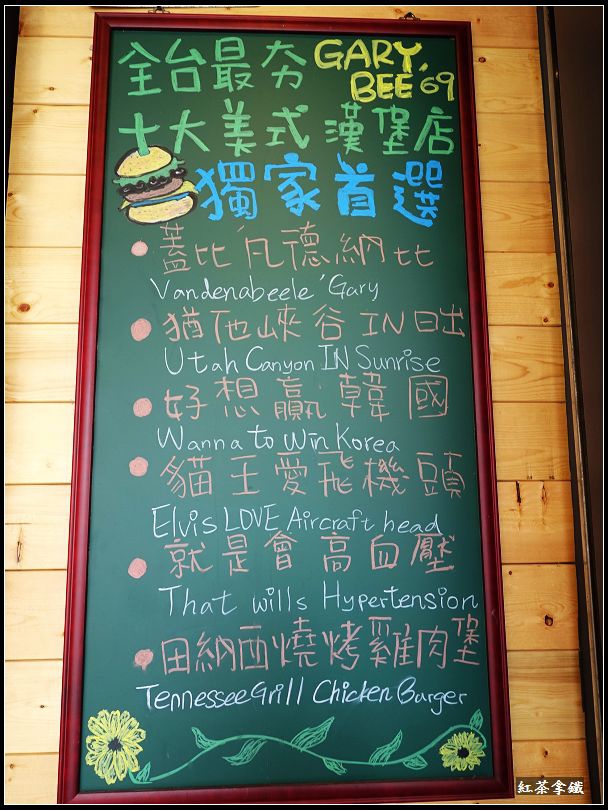 全台最夯 GARY. BEE 69
十大美式漢堡店
獨家首選
蓋比'凡德納比
Vandenabeele 'Gary
猶他峽谷IN日出
Utah Canyon IN Sunrise
好想贏韓國
Wanna to Win Korea
貓王愛飛機頭
Elvis LOVE Aircraft head
就是會高血壓
That wills Hypertension
田納西燒烤雞肉堡
Tennessee Grill Chicken Burger
紅茶拿鐵